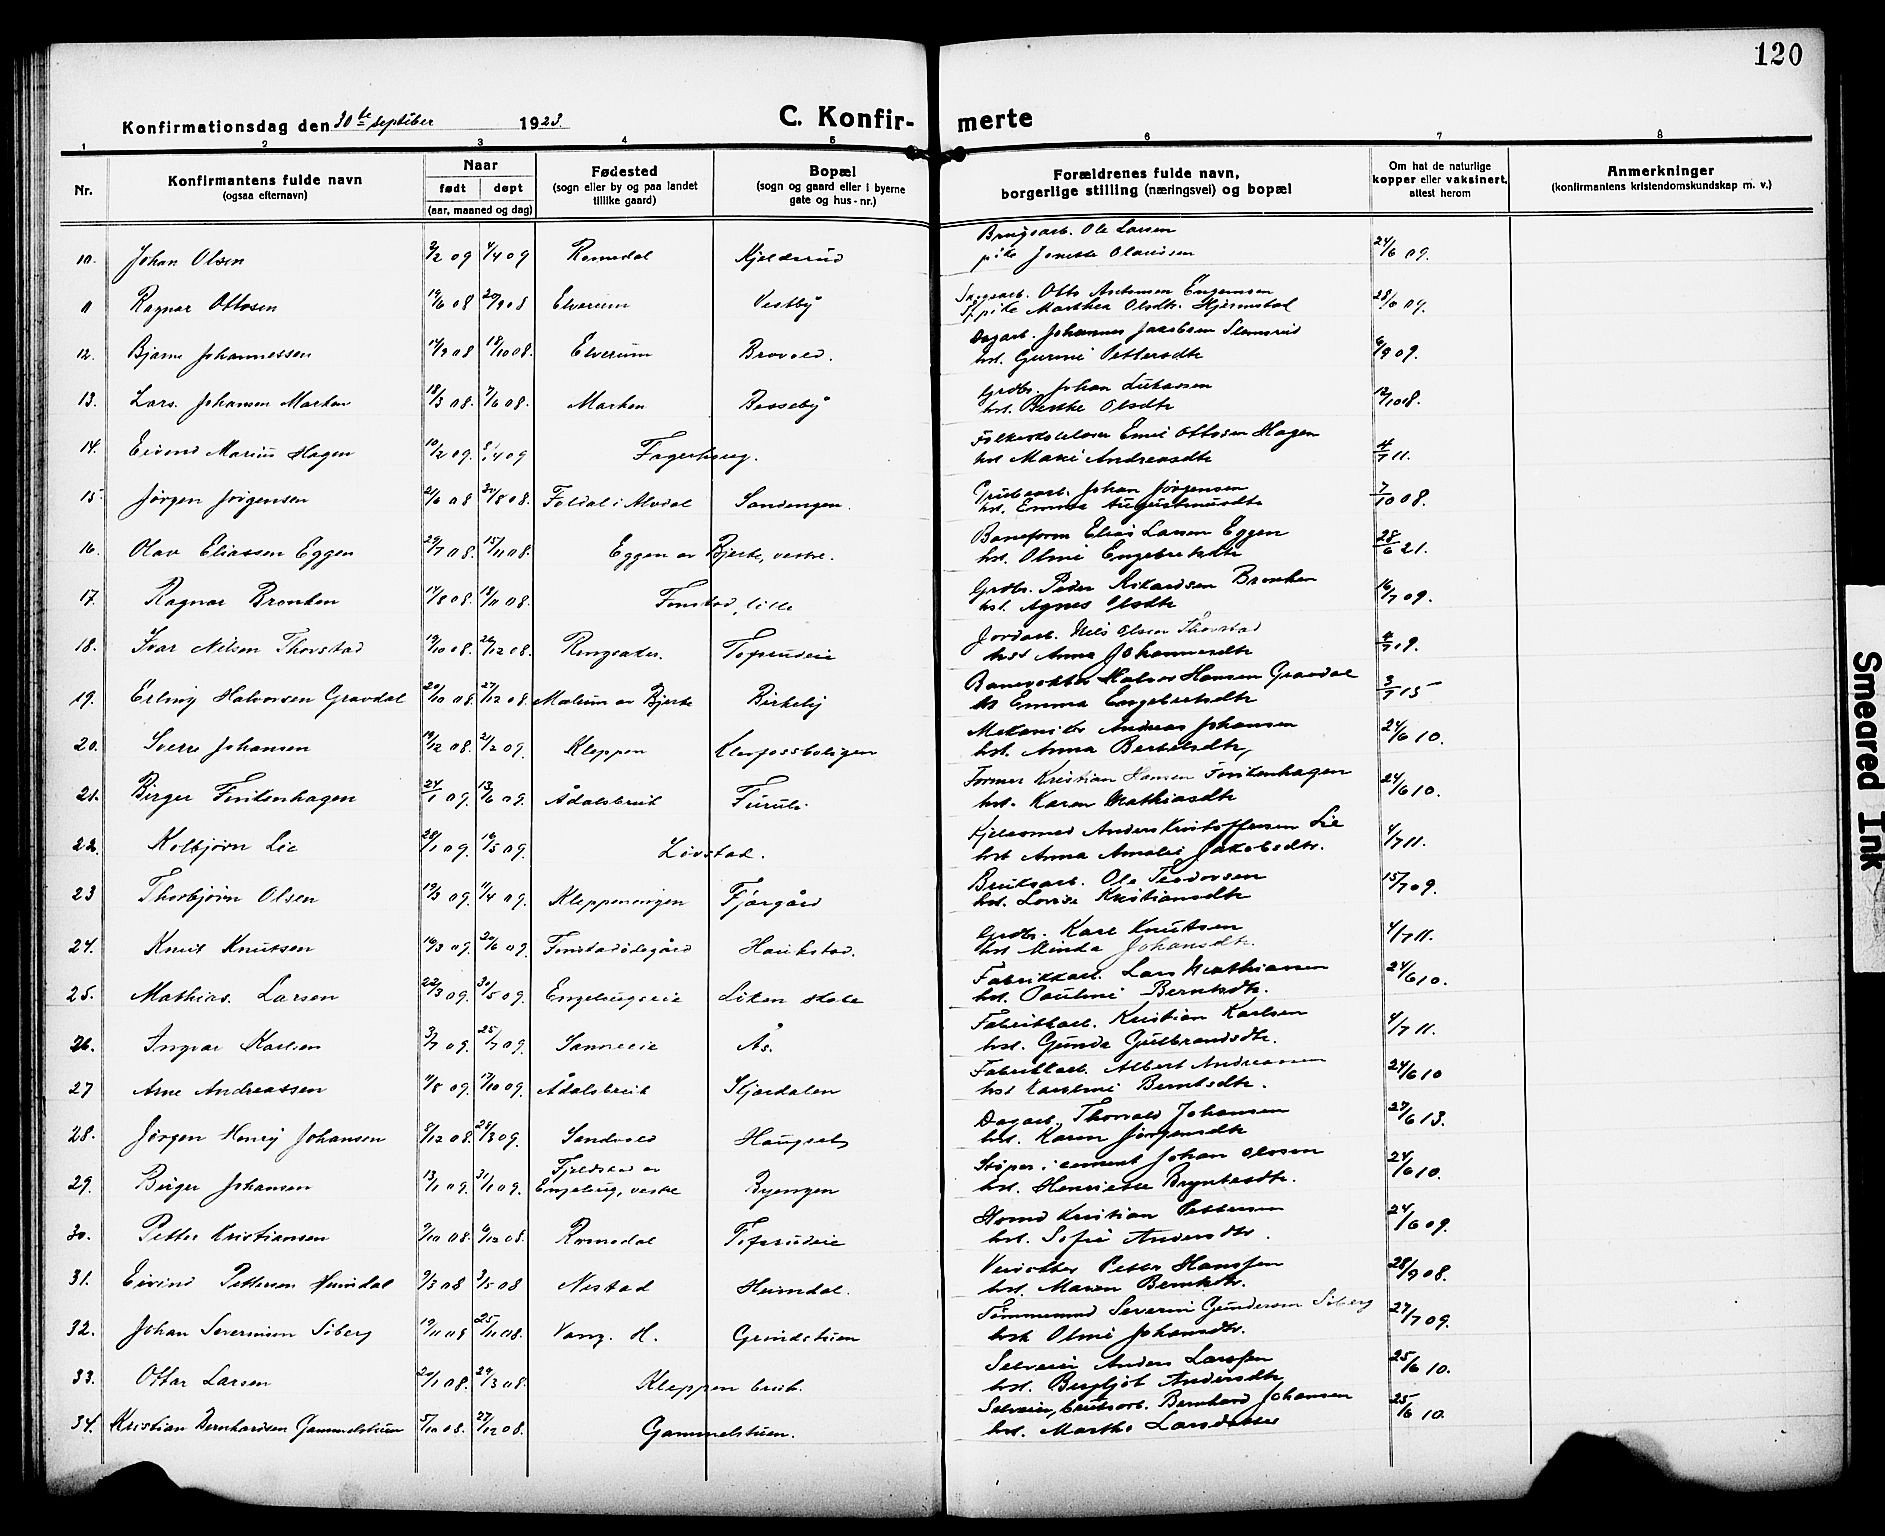 120
Konfirmationsdag den 30te september 1923.
C. Konfirmerte
1 2 3 4 5 6 7 8
Nr.
Konfirmantens fulde navn
(ogsaa efternavn)
Naar
født døpt
(aar, maaned og dag)
Fødested
(sogn eller by og paa landet
tillike gaard)
Bopæl
(sogn og gaard eller i byerne
gate og hus-nr.)
Forældrenes fulde navn,
borgerlige stilling (næringsvei) og bopæl
Om hat de naturlige
kopper eller vaksinert,
attest herom
Anmerkninger
(konfirmantens kristendomskundskap m. v.)
10. Johan Olsen 2/2 09 4/4 09 Romedal Kjeldsrud Brugsarb. Ole Larsen 24/6 09.
pike Jonette Olausen
11 Ragnar Ottosen 19/6 08 20/9 08 Elverum Vestby Otto Antonsen Engensen 09.
pike Marthea Olsdtr. Hjermstad
12. Bjarne Johannessen 14/9 08 18/10 08. Elverum Brovold. Dagarb. Johannes Jacobsen Slemsrud 6/9 09.
hst. Gurine Pettersdtr
13. Lars Johansen Marken 18/3 08. 7/6 08. Marken Basseby Grdbr. Johan Lukassen 12/10 08.
hst. Berthe Olsdtr
14. Eivind Marius Hagen 10/2 09. 4 09 Fagerhaug. Emil Ottosen Hagen 4/7 11.
hst Marie Andreasdtr
15. Jørgen Jørgensen 21/6 08 30/8 08. Foldal i Alvdal Sandengen. Grubearb. Johan Jørgensen 7/10 08.
hst. Emma Augustinusdtr
16. Olav Eliassen Eggen 29/7 08. 15/11 08. Eggen av Bjerke, vestre. Baneform. Elias Larsen Eggen 28/6 21.
hst. Oline Engebretsdtr
17. Ragnar Bronken 14/8 08. 18/11 08. Finstad, lille Grdbr. Peder Rikardsen Bronken 16/7 09.
hst. Agnes Olsdtr
18. Ivar Nilsen Thorstad 19/10 08. 26/12 08. Ringsaker. Tofsrudeie Jordarb. Nils Olsen Thorstad 4/7 09.
hst Anna Johannesdtr
19. Erling Halvorsen Gravdal 20/10 08. 27/12 08. Mælum av Bjerke Birkeby Banevokter Halvor Hansen Gravdal 3/7 15
hst Emma Engebretsdtr
20. Sverre Johansen 19/12 08. 21/2 09. Kleppen Klevfossboligen Mekaniker Andreas Johansen 24/6 10.
hst. Anna Bertelsdtr,
21. Birger Finkenhagen 24/1 09. 13/6 09. Ådalsbruk Furuli Former Kristian Hansen Finkenhagen 24/6 10.
hst. Karen Mathiasdtr
22. Kolbjørn Lie 28/1 09. 16/5 09. Løvstad. Kjelesmed Anders Kristoffersen Lie 4/7 11.
hst Anna Amalie Jakobsdtr.
23 Thorbjørn Olsen 19/3 09. 11/4 09. Kleppenengen Fjørgård Bruksarb. Ole Teodorsen 15/7 09.
hst. Lovise Kristiansdtr
24. Knut Knutsen 16/3 09. 20/6 09. Finstadødegård Haukstad. Grdbr. Kare Knutsen 4/7 11.
hst Minda Johansdtr.
25. Mathias Larsen 22/3 09. 30/5 09. Engelaugseie Liken skole Fabrikkarb. Lars Mathiassen 24/6 10.
hst. Pauline Berntsdtr.
26. Ingvar Karlsen 3/7 09. 25/7 09. Sanneeie Ås. Fabrikkarb. Kristian Karlsen 4/7 11.
hst. Gunda Gulbrandsdtr.
27 Arne Andreassen 11/8 09. 17/10 09. Ådalsbruk Skjærdalen Fabrikkarb. Albert Andreassen 24/6 10
hst Karoline Berntsdtr.
28. Jørgen Henry Johansen 8/12 08. 28/3 09. Sandvold Haugset Dagarb. Thorvald Johansen 27/6 13.
hst. Karen Jørgensdtr
29. Birger Johansen 13/1 09. 31/1 09. Fjeldstad av
Engelaug, vestre Byengen Støper i cement Johan Olssen 24/6 10.
hst. Henriette Bryntesdtr.
30. Petter Kristiansen 9/10 08. 6/12 08. Romedal Tofsrudeie Kristian Pettersen 24/6 09.
hst. Sofie Andersdtr.
31. Eivind Pettersen Heimdal 9/3 08 3/5 08 Nestad Heimdal. Veivokter Petter Hanssen 28/9 08.
hst. Maren Berntsdtr.
32. Johan Severinsen Siberg 19/11 08 25/11 08. Vang. H. Grindstuen Tømmermand Severin Gundersen Siberg 27/7 09.
hst Oline Johansdtr.
33. Ottar Larsen 20/1 08. 29/3 08. Kleppen bruk. Selveier Anders Larssen 25/6 10.
hst. Bergljot Andersdtr
34. Kristian Bernhardsen Gammelstuen 5/10 08. 27/12 08. Gammelstuen. Selveier, bruksarb. Bernhard Johansen 25/6 10.
hst. Marthe Larsdatter
Smeared Ink